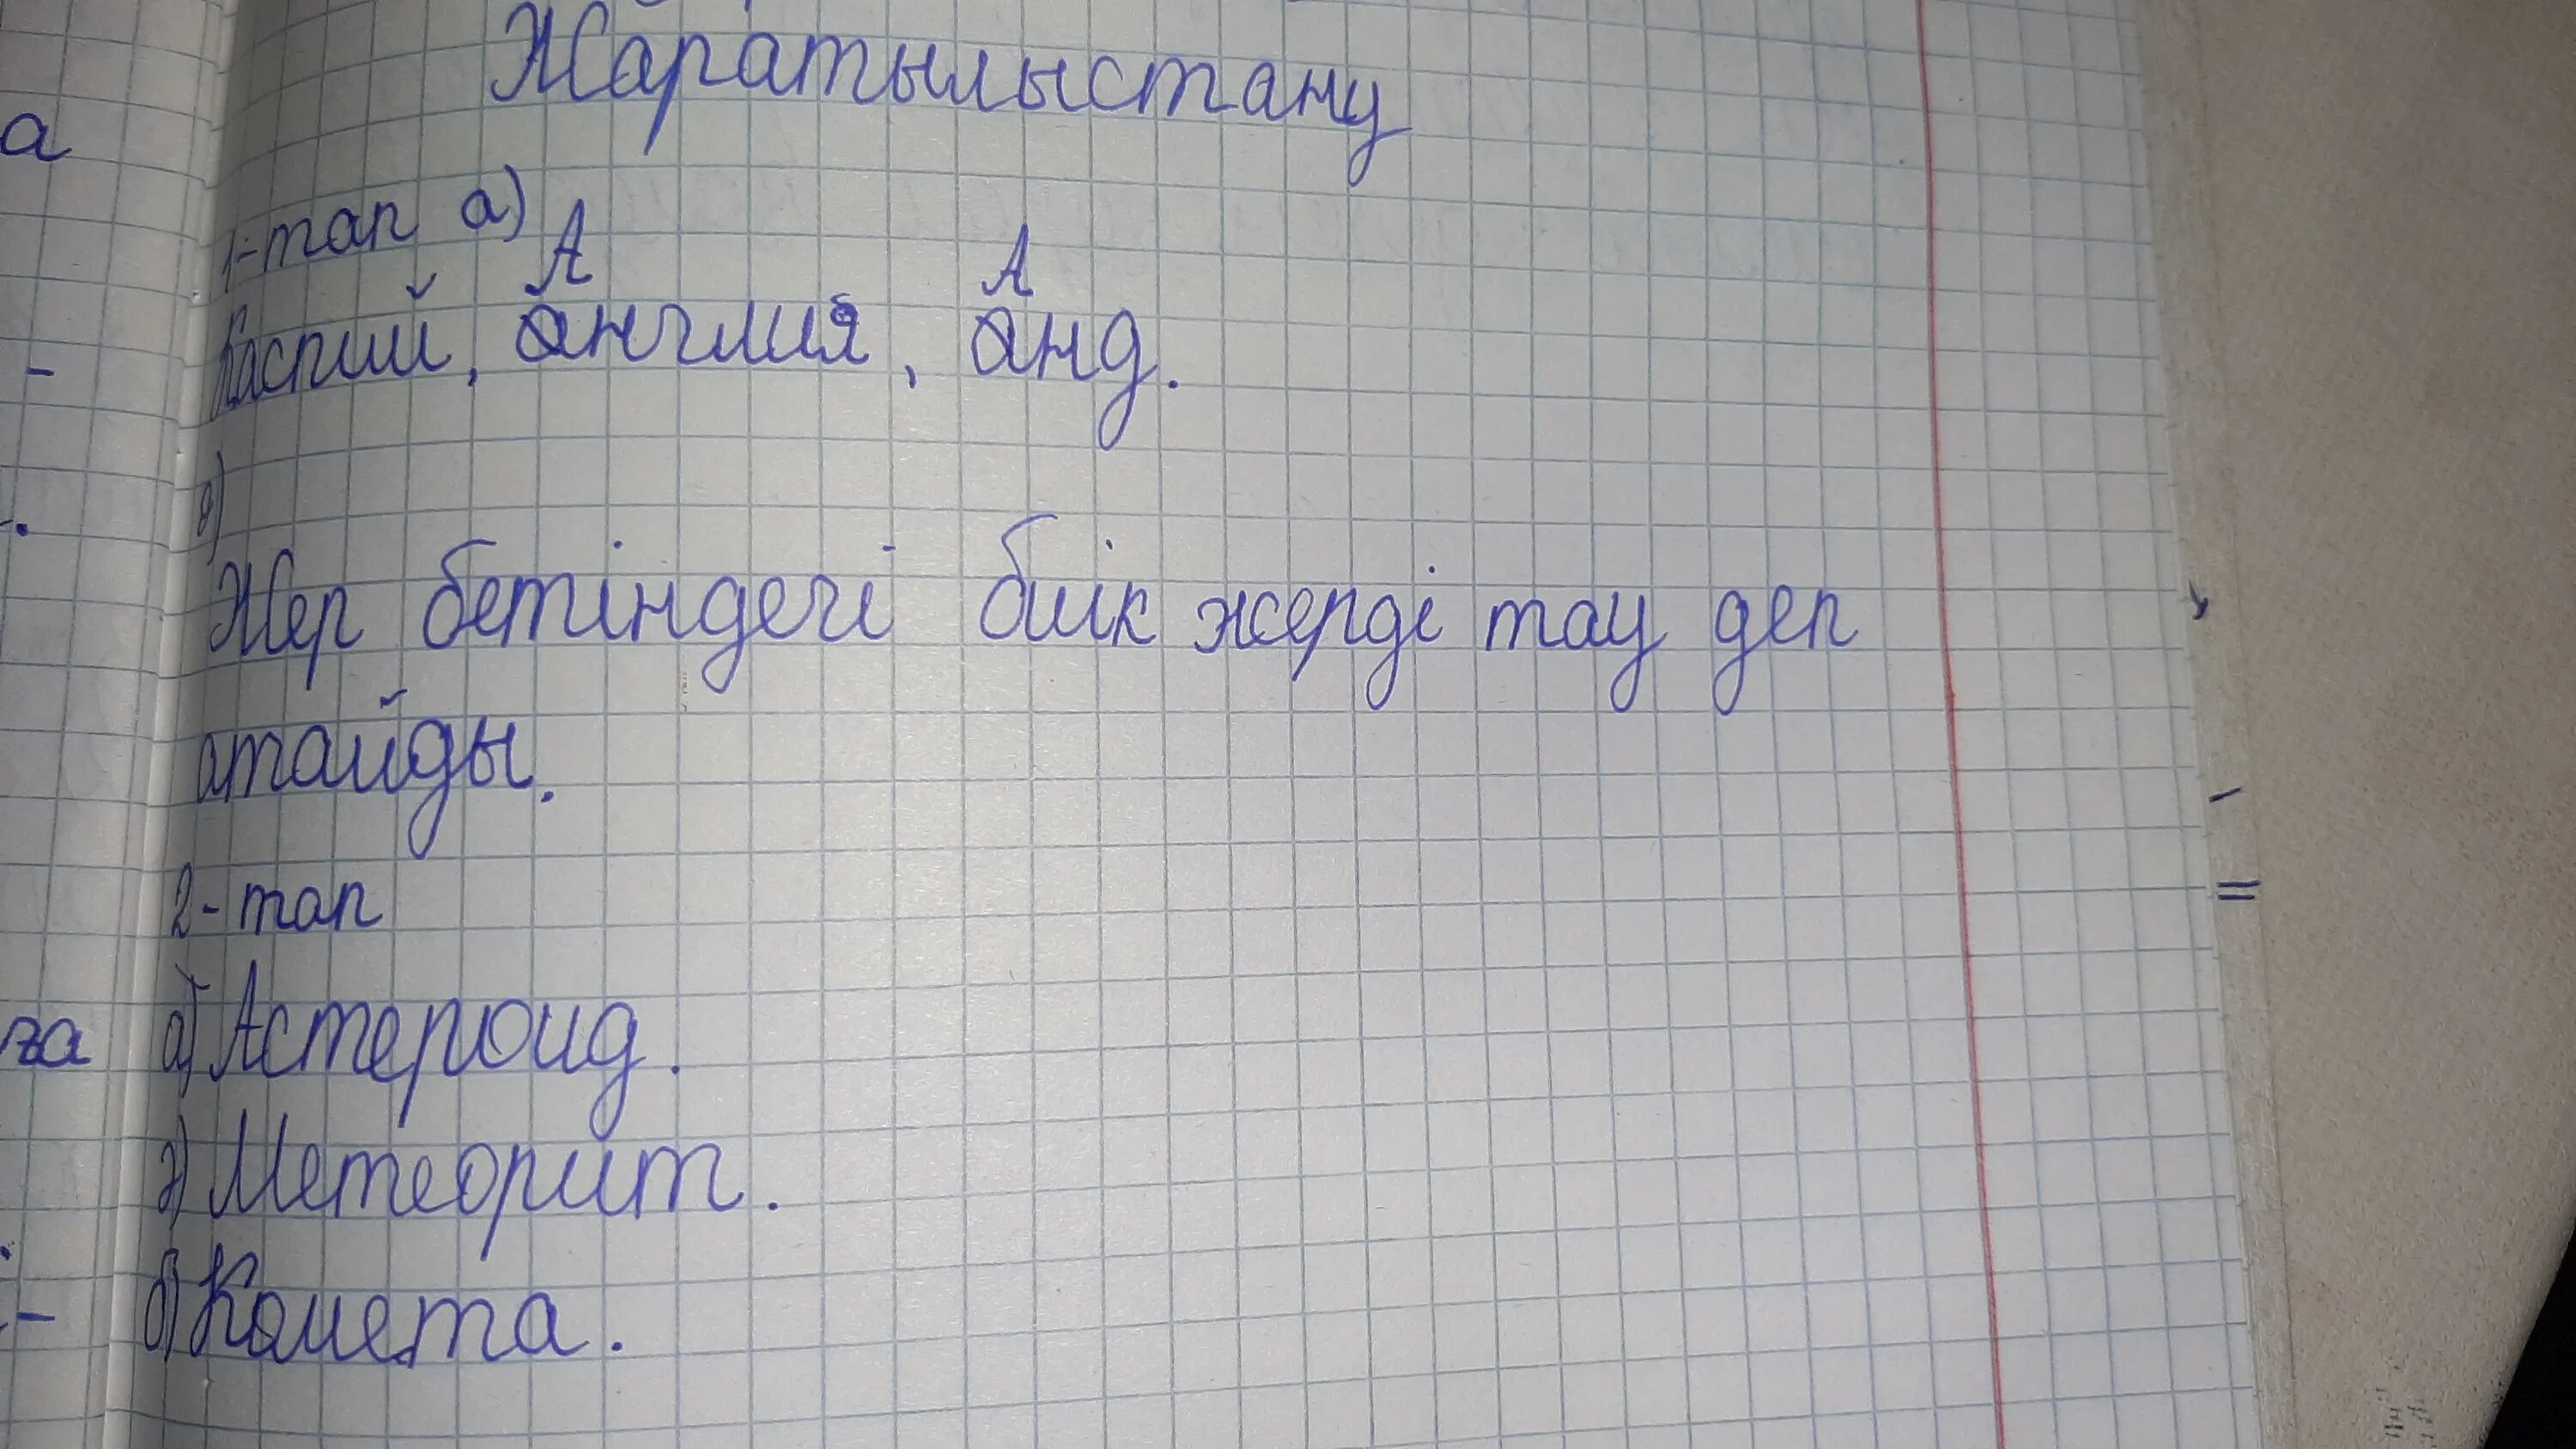 Жаратылыстану
а
1-тап а)
А А
Каспий, англия, анд.
ә)
Жер бетіндегі биік жерді тау деп
атайды.
2-тап
а) Астероид.
ә) Метеорит.
за
б) Комета.